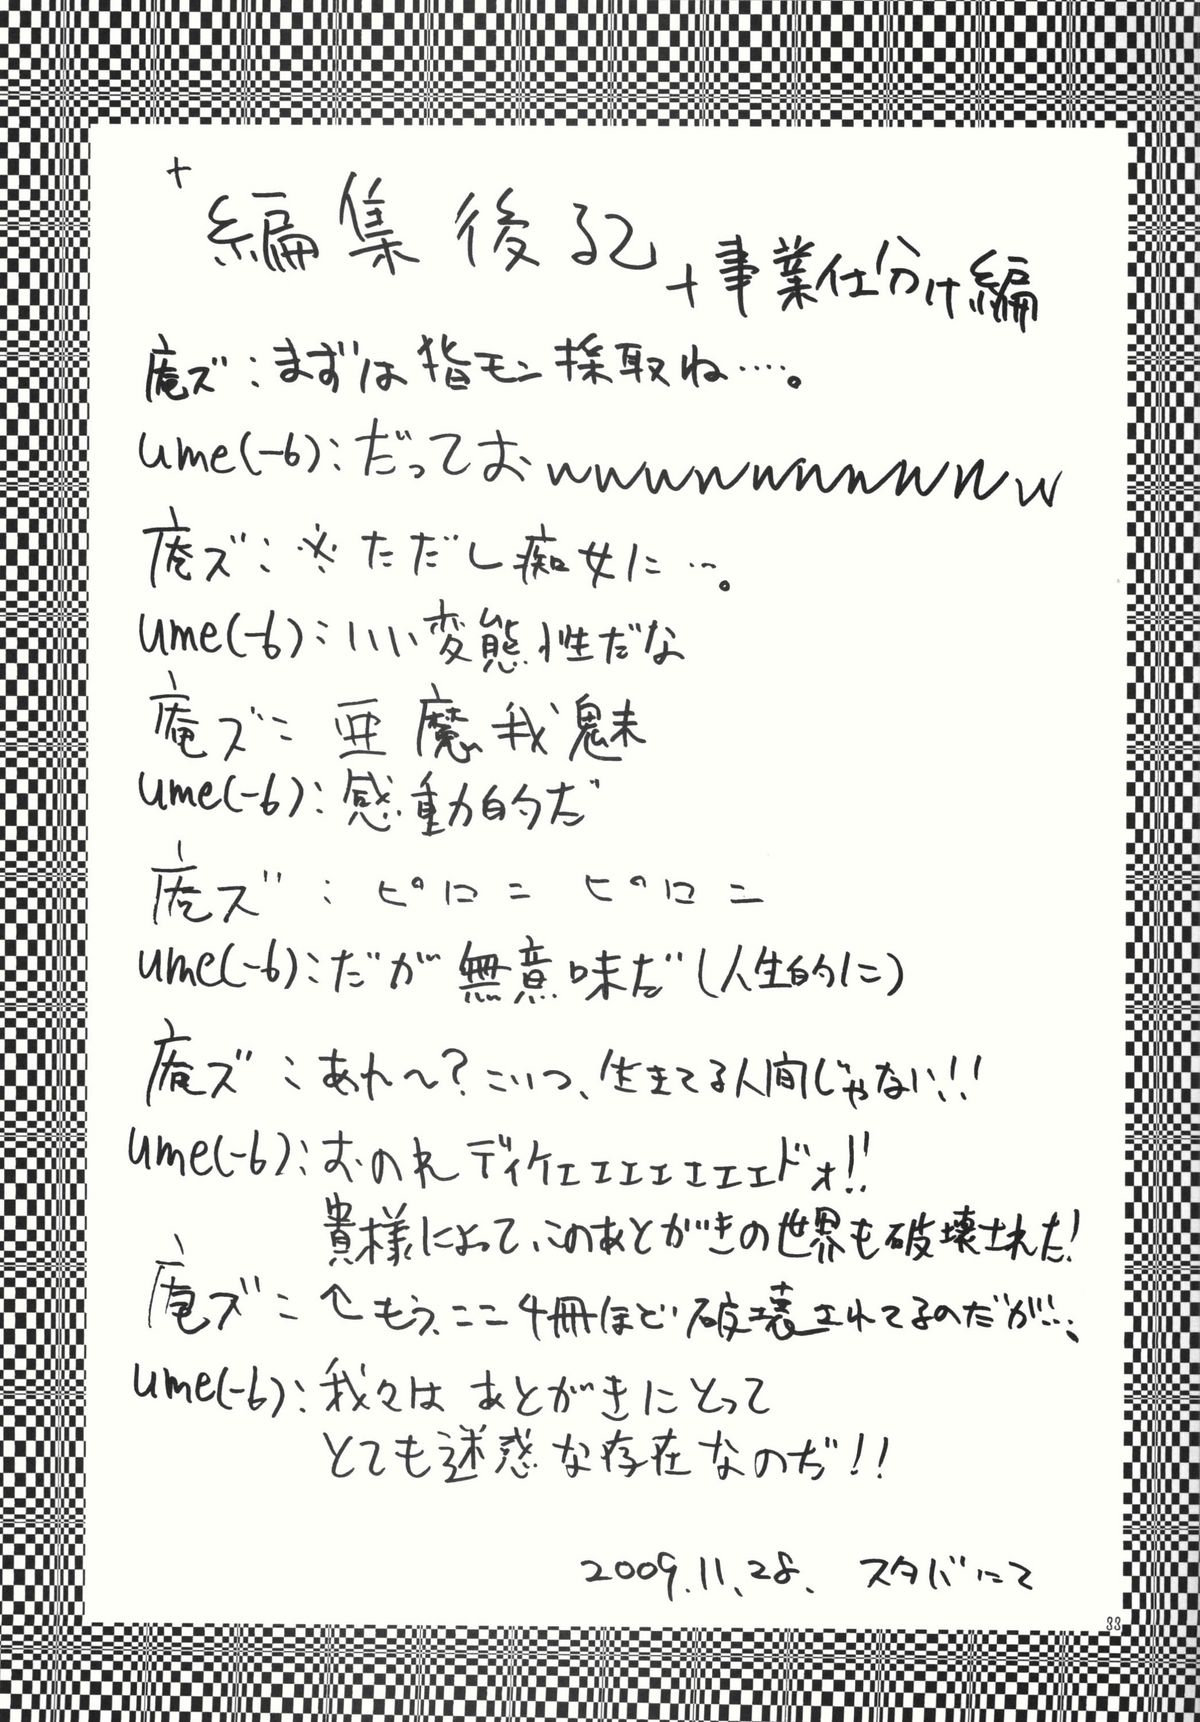 +
編集後記
+事業仕分け編
庵ズ：まずは指モン採取ね….。
ume(-6)：だっておwwwwwwwwwww
庵ズ：※ただし痴女に…。
ume(-6)：いい変態性だな
庵ズ：亜魔我魅
ume(-6)：感動的だ
庵ズ：ピロニ ピロニ
ume(-6)：だが無意味だ(人生的に)
庵ズ：あれ～?こいつ、生きてる人間じゃない!!
ume(-6)：おのれディケェェェェェェェドォ!!
貴様によって、このあとがきの世界も破壊された!
庵ズ：↑もう、ここ4冊ほど破壊されてるのだが…。
ume(-6)：我々はあとがきにとって
とても迷惑な存在なのぢ!!
2009.11.28. スタバにて
33